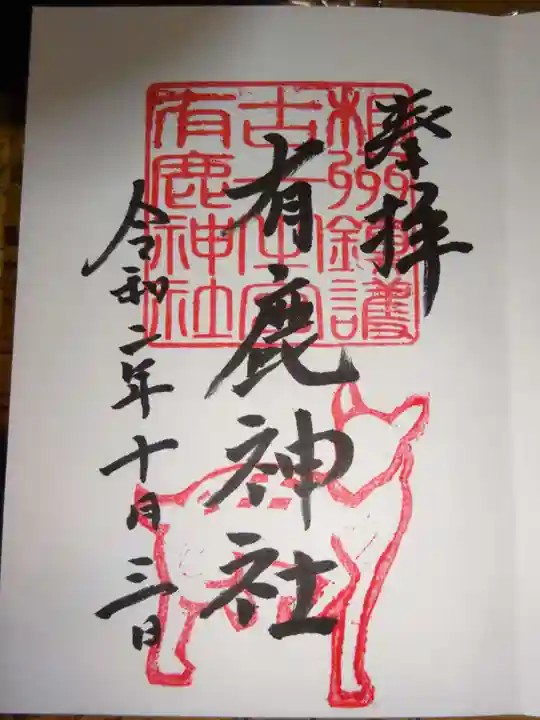 奉拝
有鹿神社
令和二年十月三日
相州鎮護
有鹿神社